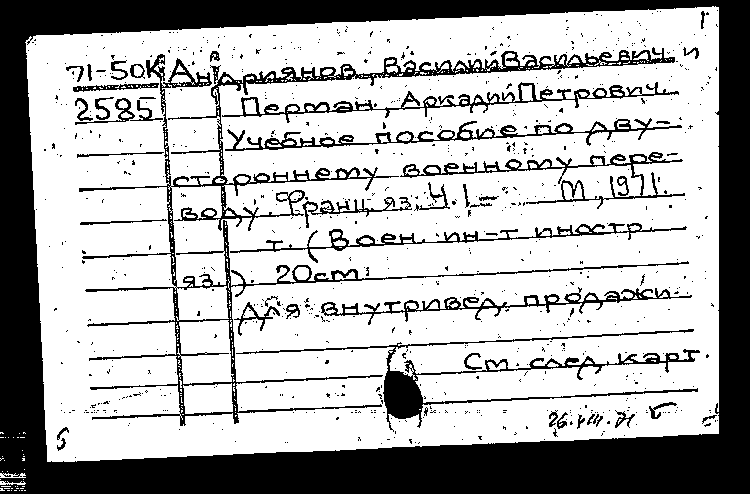 71-50К Андриянов, Василий Васильевич и
2585 Перман, Аркадий Петрович.
Учебное пособие по дву-
стороннему военному пере-
воду. Франц. яз. Ч. 1- М, 1971.
т. (Воен. ин-т иностр.
яз.). 20см.
Для внутривед. продажи
См. след. карт.
26.VIII.71